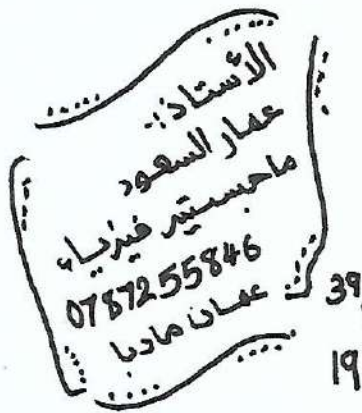 الأستاذ:-
عمار السعود
ماجستير فيزياء
0787255846
عمان مادبا
39
19